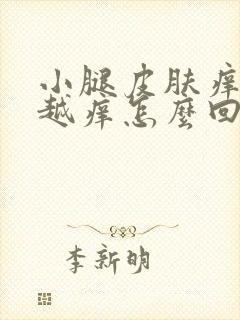 小腿皮肤痒
越痒怎麽回
李新明